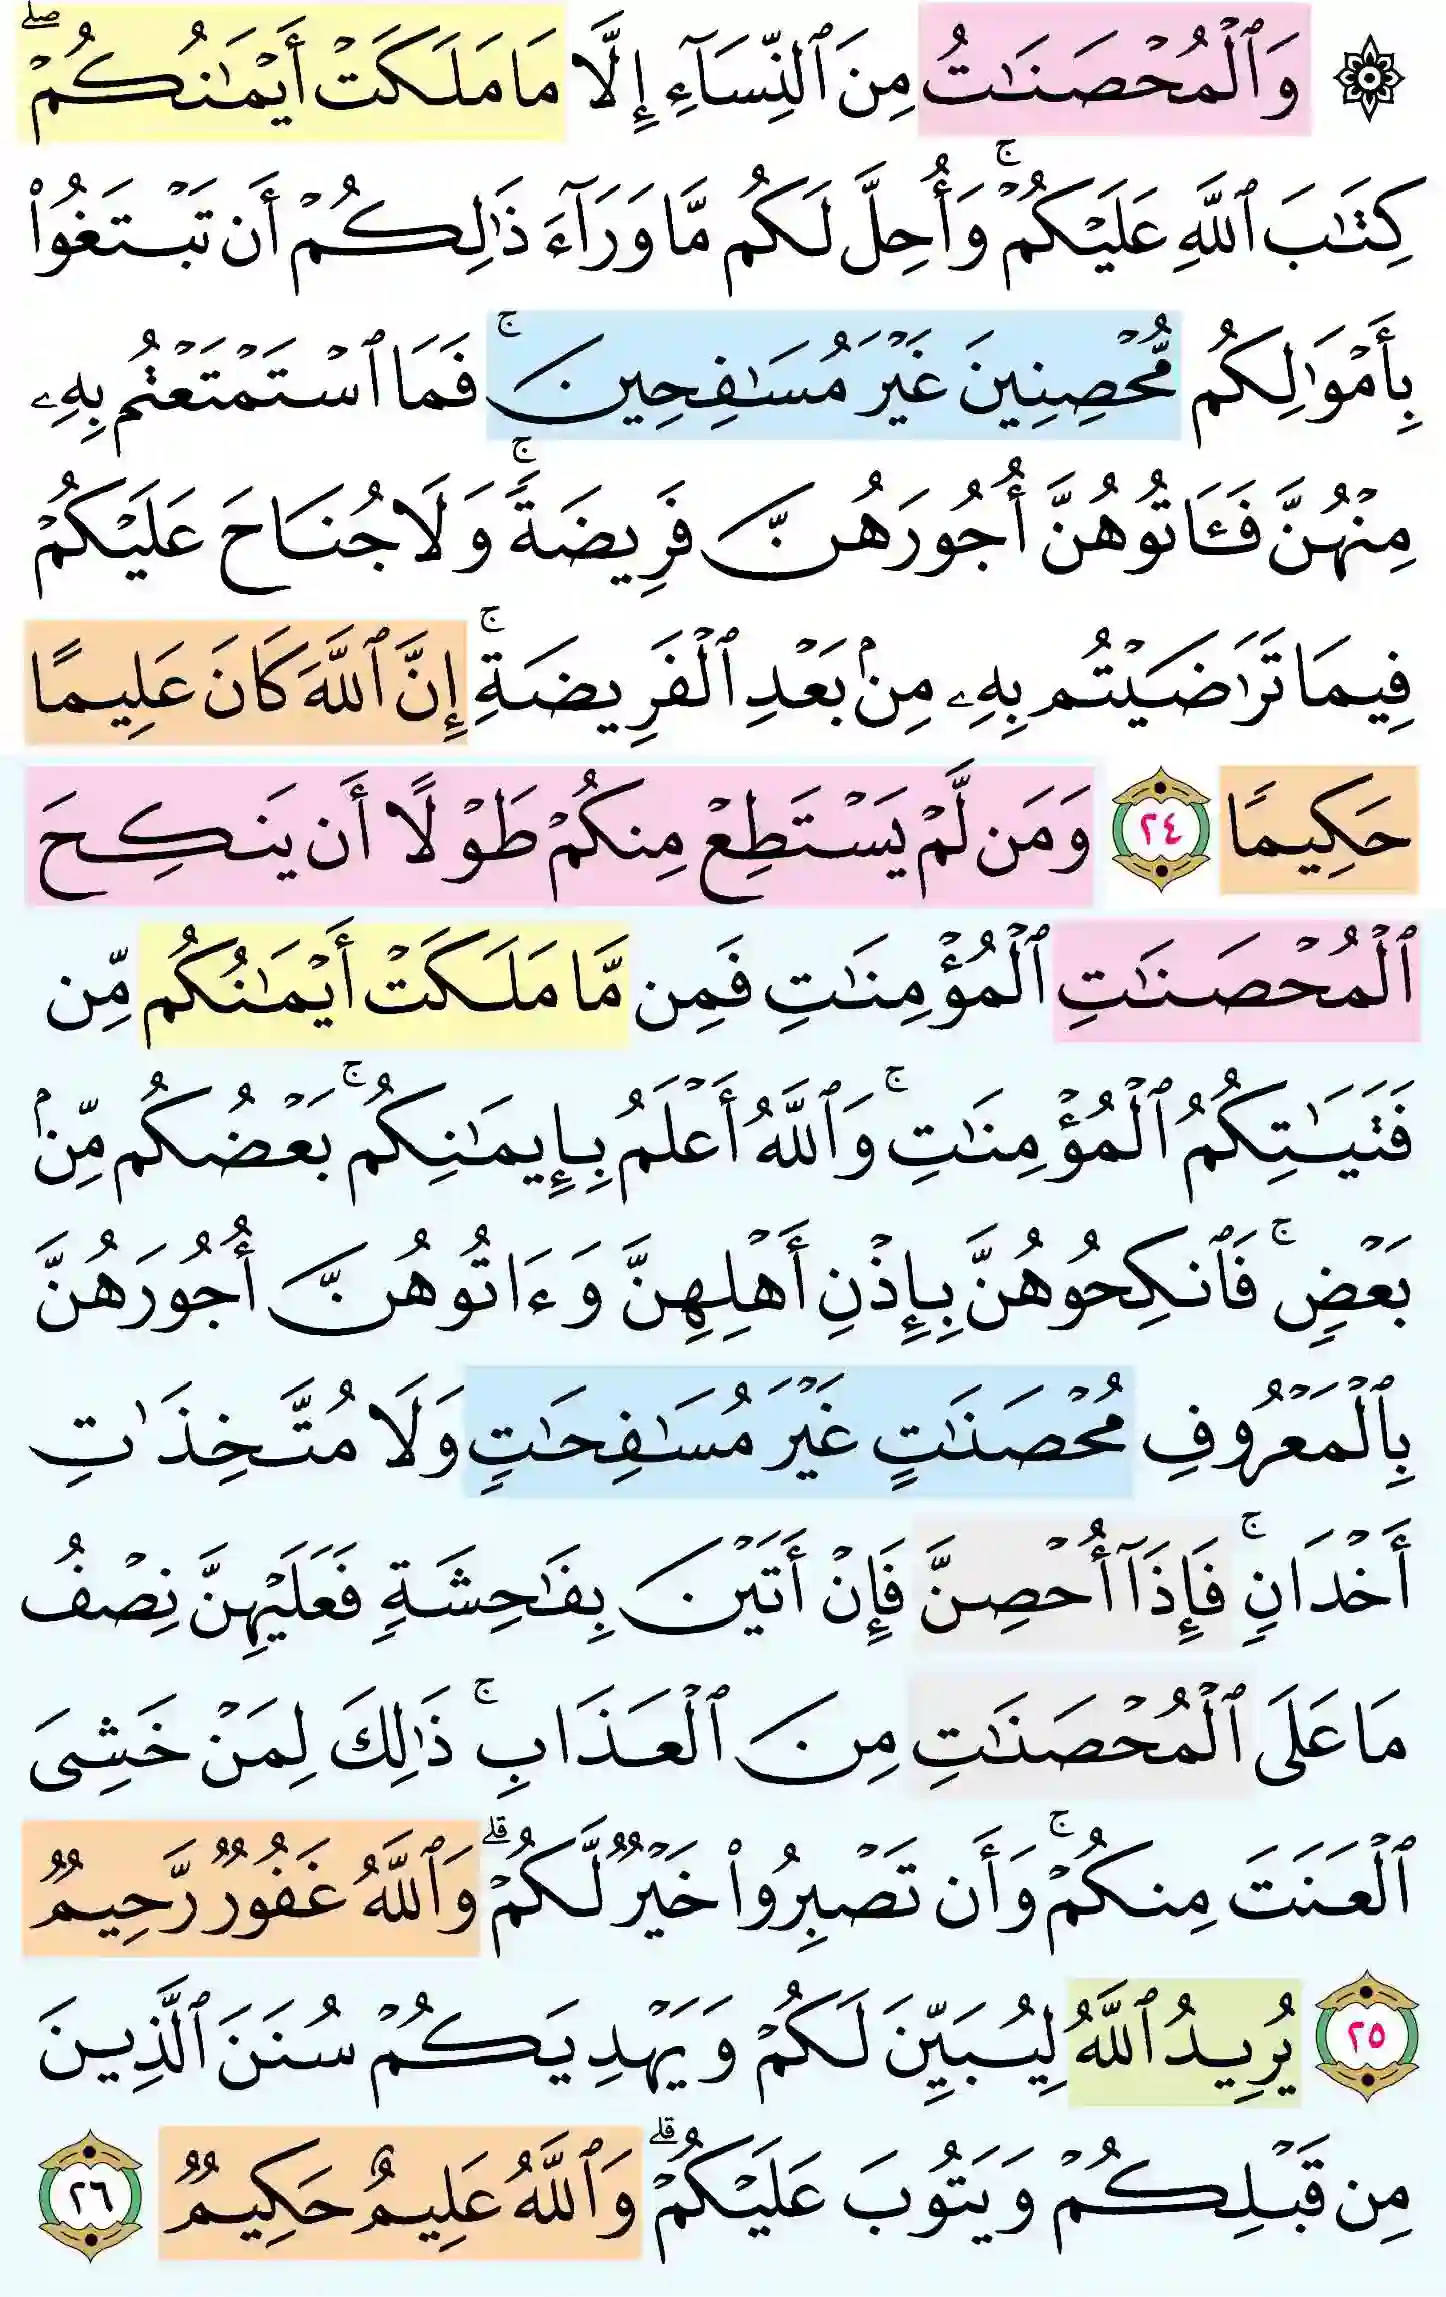 ۞ وَٱلْمُحْصَنَٰتُ مِنَ ٱلنِّسَآءِ إِلَّا مَا مَلَكَتْ أَيْمَٰنُكُمْ ۖ
كِتَٰبَ ٱللَّهِ عَلَيْكُمْ ۚ وَأُحِلَّ لَكُم مَّا وَرَآءَ ذَٰلِكُمْ أَن تَبْتَغُوا۟
بِأَمْوَٰلِكُم مُّحْصِنِينَ غَيْرَ مُسَٰفِحِينَ ۚ فَمَا ٱسْتَمْتَعْتُم بِهِۦ
مِنْهُنَّ فَـَٔاتُوهُنَّ أُجُورَهُنَّ فَرِيضَةً ۚ وَلَا جُنَاحَ عَلَيْكُمْ
فِيمَا تَرَٰضَيْتُم بِهِۦ مِنۢ بَعْدِ ٱلْفَرِيضَةِ ۚ إِنَّ ٱللَّهَ كَانَ عَلِيمًا
حَكِيمًا ٢٤ وَمَن لَّمْ يَسْتَطِعْ مِنكُمْ طَوْلًا أَن يَنكِحَ
ٱلْمُحْصَنَٰتِ ٱلْمُؤْمِنَٰتِ فَمِن مَّا مَلَكَتْ أَيْمَٰنُكُم مِّن
فَتَيَٰتِكُمُ ٱلْمُؤْمِنَٰتِ ۚ وَٱللَّهُ أَعْلَمُ بِإِيمَٰنِكُم ۚ بَعْضُكُم مِّنۢ
بَعْضٍ ۚ فَٱنكِحُوهُنَّ بِإِذْنِ أَهْلِهِنَّ وَءَاتُوهُنَّ أُجُورَهُنَّ
بِٱلْمَعْرُوفِ مُحْصَنَٰتٍ غَيْرَ مُسَٰفِحَٰتٍ وَلَا مُتَّخِذَٰتِ
أَخْدَانٍ ۚ فَإِذَآ أُحْصِنَّ فَإِنْ أَتَيْنَ بِفَٰحِشَةٍ فَعَلَيْهِنَّ نِصْفُ
مَا عَلَى ٱلْمُحْصَنَٰتِ مِنَ ٱلْعَذَابِ ۚ ذَٰلِكَ لِمَنْ خَشِىَ
ٱلْعَنَتَ مِنكُمْ ۚ وَأَن تَصْبِرُوا۟ خَيْرٌ لَّكُمْ ۗ وَٱللَّهُ غَفُورٌ رَّحِيمٌ
٢٥ يُرِيدُ ٱللَّهُ لِيُبَيِّنَ لَكُمْ وَيَهْدِيَكُمْ سُنَنَ ٱلَّذِينَ
مِن قَبْلِكُمْ وَيَتُوبَ عَلَيْكُمْ ۗ وَٱللَّهُ عَلِيمٌ حَكِيمٌ ٢٦